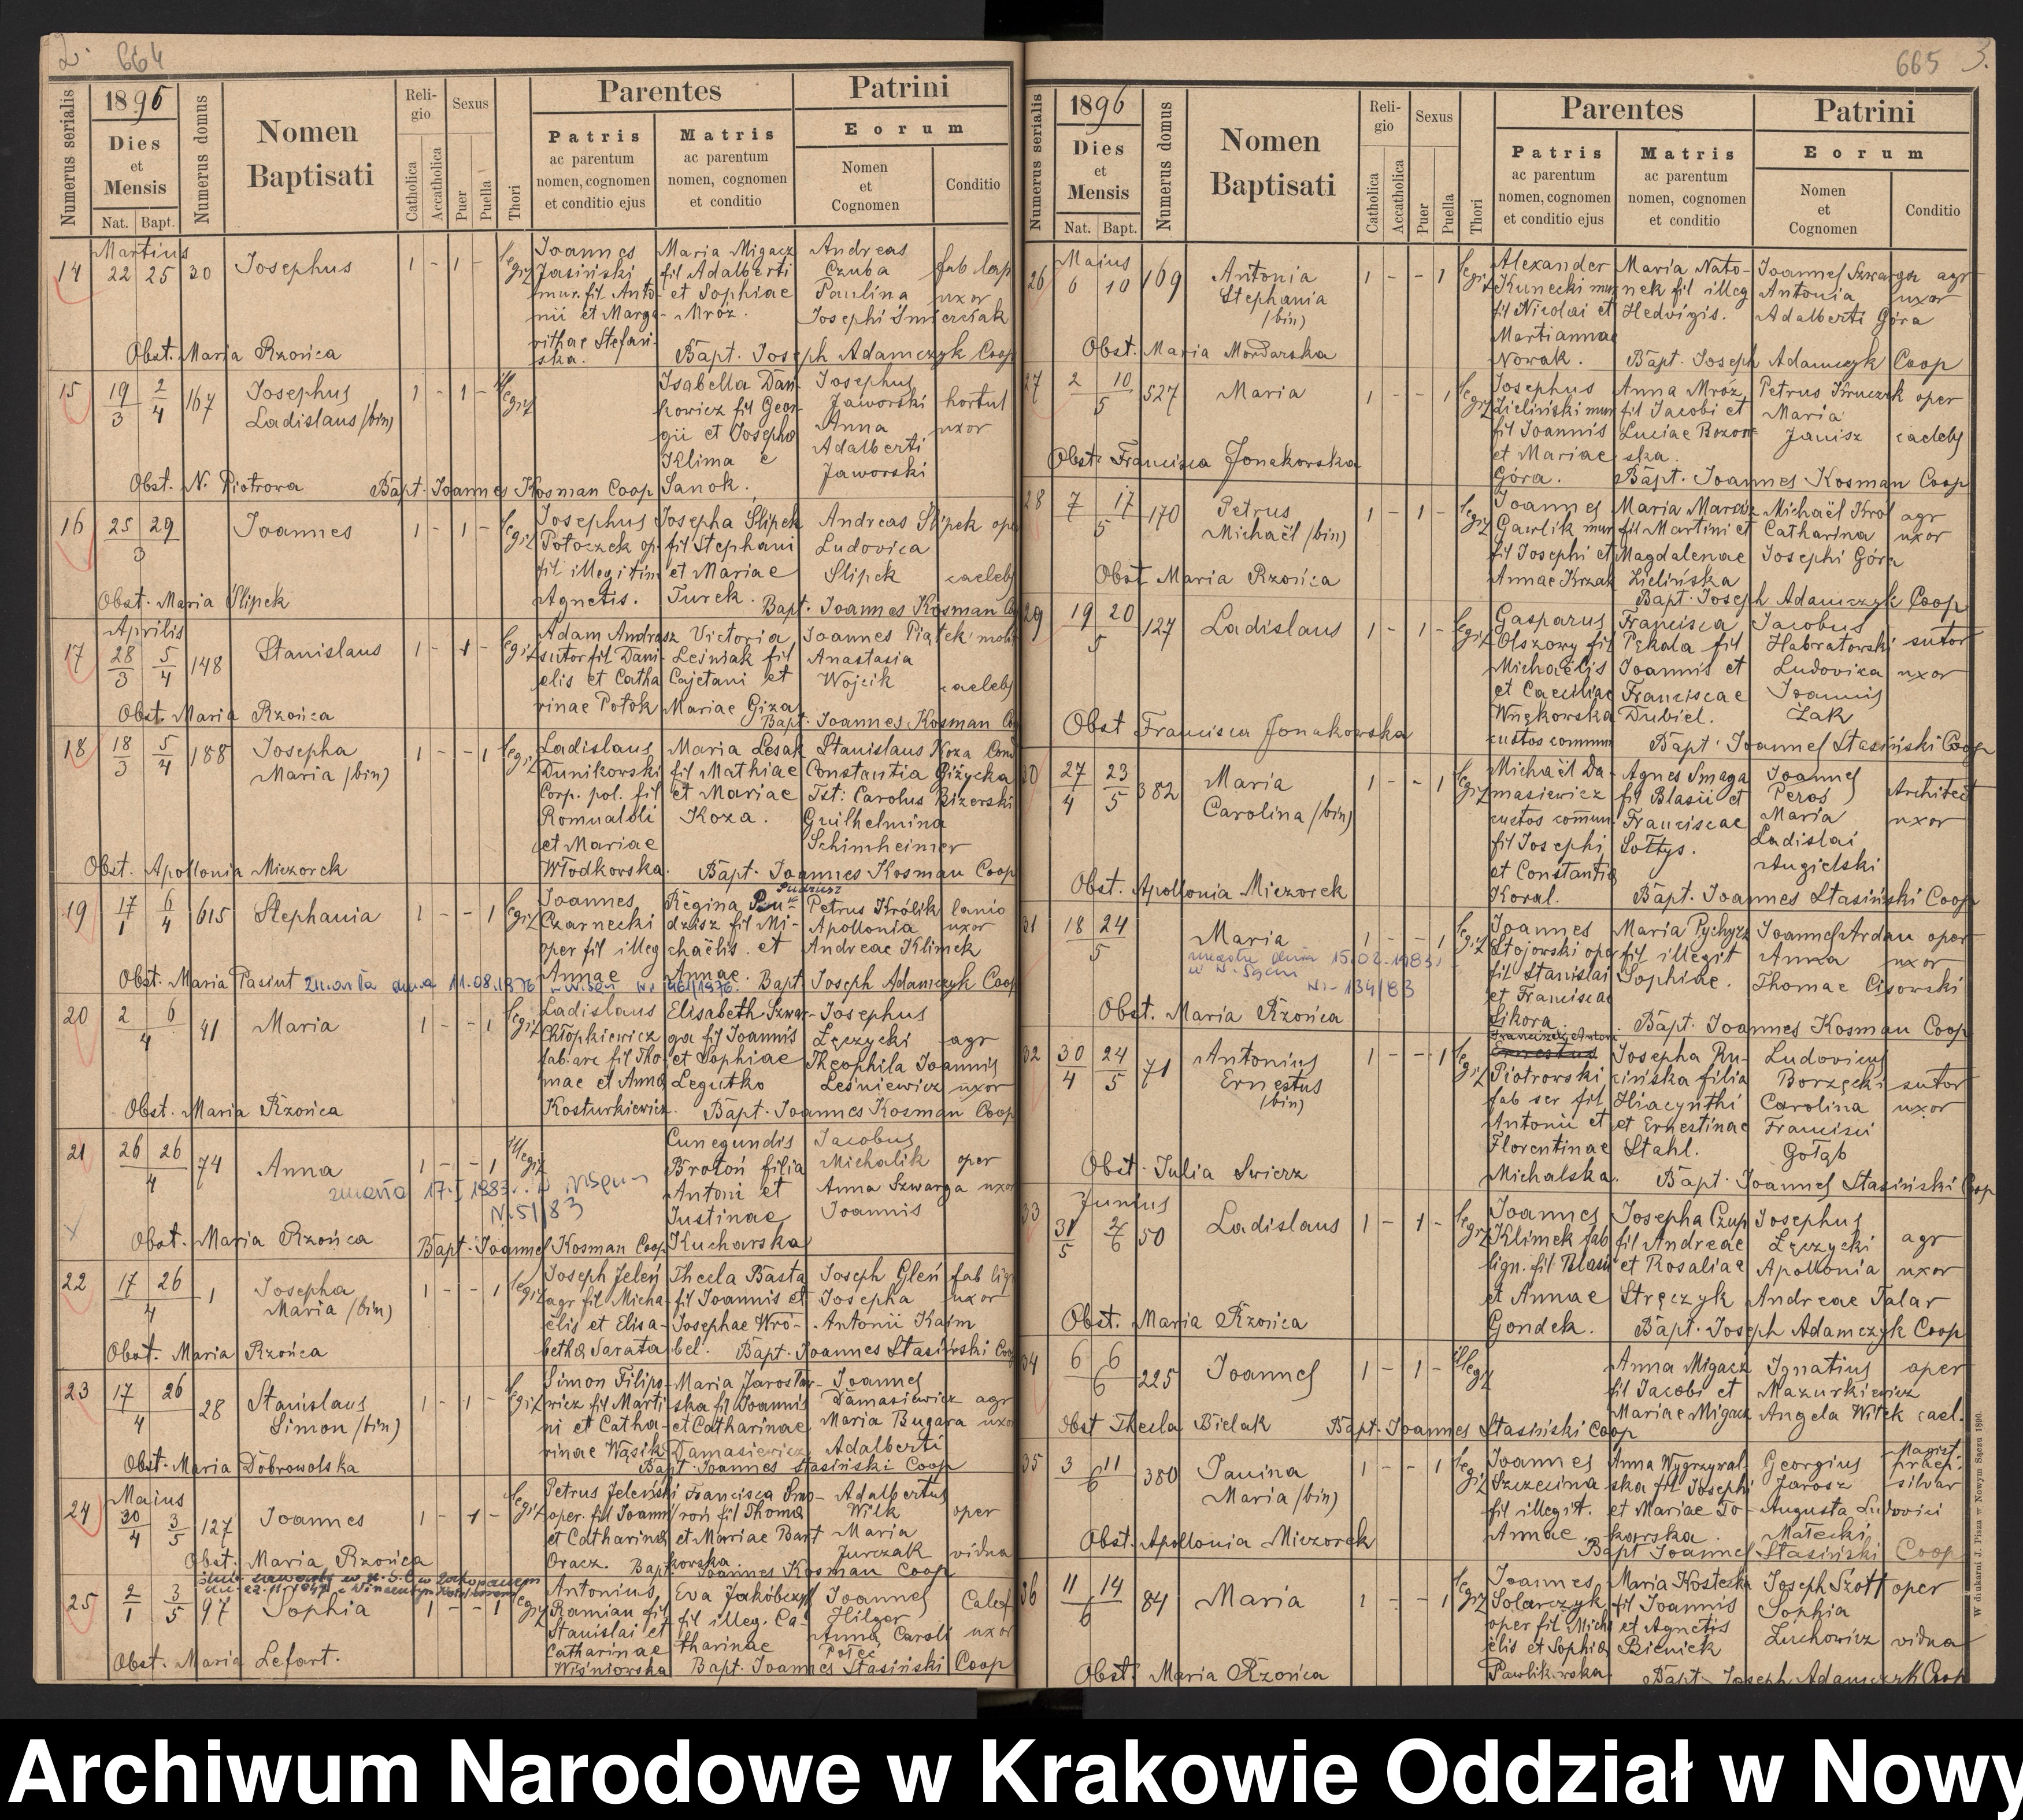 2. 664
Numerus serialis
1896
Dies et Mensis
Nat. Bapt.
Numerus domus
Nomen Baptisati
Religio
Catholica
Accatholica
Sexus
Puer
Puella
Thori
Parentes
Patris ac parentum nomen, cognomen et conditio ejus
Matris ac parentum nomen, cognomen et conditio
Patrini
Eorum
Nomen et Cognomen
Conditio
Martius
14 22 25 30 Josephus 1 - 1 - legit
Joannes Jasiński mur. fil Antonii et Margarithae Stefańska.
Maria Migacz fil Adalberti et Sophiae Mróz.
Andreas Czuba fab lap
Paulina uxor
Josephi Śmierciak
Obst. Maria Rzońca Bapt. Joseph Adamczyk Coop
15 19/3 2/4 167 Josephus Ladislaus (bin) 1 - 1 - illegit
Isabella Dańkowicz fil Georgii et Josepha Klima e Sanok.
Josephus Jaworski hortul
Anna uxor
Adalberti Jaworski
Obst. N. Piotrowa Bapt. Joannes Kosman Coop
16 25 29 3 Joannes 1 - 1 - legit
Josephus Potoczek op. fil illegitim Agnetis.
Josepha Ślipek fil Stephani et Mariae Turek.
Andreas Ślipek oper
Ludovica Ślipek caelebs
Obst. Maria Ślipek Bapt. Joannes Kosman Co
Aprilis
17 28/3 5/4 148 Stanislaus 1 - 1 - legit
Adam Andrasz sutor fil Danielis et Catharinae Potok
Victoria Leśniak fil Cajetani et Mariae Giza
Joannes Piątek
Anastasia Wojcik caelebs
Obst. Maria Rzońca Bapt. Joannes Kosman Co
18 18/3 5/4 188 Josepha Maria (bin) 1 - - 1 legit
Ladislaus Dunikowski Corp. pol. fil Romualdi et Mariae Włodkowska.
Maria Lesak fil Mathiae et Mariae Koza.
Stanislaus Koza Cond
Constantia Giżycka
Tst: Carolus Bizerski
Guilhelmina Schimheimer
Obst. Apollonia Mieżorek Bapt. Joannes Kosman Coop
19 17/1 6/4 615 Stephania 1 - - 1 legit
Joannes Czarnecki oper fil illeg Annae
Regina fil Michaëlis et Annae.
Petrus Królik lanio
Apollonia uxor
Andreae Klimek
Obst. Maria Pasiut zmarła dnia 11.08.1976 Bapt. Joseph Adamczyk Coop
20 2 6 4 41 Maria 1 - - 1 legit
Ladislaus Chłopkiewicz fab. arc fil Thomae et Anna Kosturkiewicz.
Elisabeth Szwarga fil Joannis et Sophiae Legutko
Josephus Łęczycki agr
Theophila Joannis Leśniewicz uxor
Obst. Maria Rzońca Bapt. Joannes Kosman Coop
21 26 26 4 74 Anna 1 - - 1 illegit
Cunegundis Brotoń filia Antoni et Justinae Kucharska
Jacobus Michalik oper
Anna Szwarga uxor
Joannis
zmarła 17.I 1983 N.Sącz Nr 51/83
Obst. Maria Rzońca Bapt. Joannes Kosman Coop
22 17 26 4 1 Josepha Maria (bin) 1 - - 1 legit
Joseph Jeleń agr fil Michaelis et Elisabetha Sarata
Thecla Basta fil Joannis et Josephae Wrobel.
Joseph Gleń fab lign
Josepha uxor
Antonii Kaim
Obst. Maria Rzońca Bapt. Joannes Stasiński Coop
23 17 26 4 28 Stanislaus Simon (bin) 1 - 1 - legit
Simon Filipowicz fil Martini et Catharinae Wąsik
Maria Jarosławska fil Joannis et Catharinae Damasiewicz
Joannes Damasiewicz agr
Maria Bugara uxor
Adalberti
Obst. Maria Dobrowolska Bapt. Joannes Stasiński Coop
Maius
24 30/4 3/5 127 Joannes 1 - 1 - legit
Petrus Jeleński oper. fil Joanni et Catharina Oracz.
Francisca Smoroń fil Thoma et Mariae Bartkowska.
Adalbertus Wilk oper
Maria Jurczak vidua
Obst. Maria Rzońca Bapt. Joannes Kosman Coop
25 2/1 3/5 97 Sophia 1 - - 1 legit
Antonius Ramian fil Stanislai et Catharinae Wiśniowska
Eva Jakóbczyk fil illeg. Catharinae
Joannes Hilger
Anna Caroli uxor
Obst. Maria Lefart. Bapt. Joannes Stasiński Coop
665 3.
Numerus serialis
1896
Dies et Mensis
Nat. Bapt.
Numerus domus
Nomen Baptisati
Religio
Catholica
Accatholica
Sexus
Puer
Puella
Thori
Parentes
Patris ac parentum nomen, cognomen et conditio ejus
Matris ac parentum nomen, cognomen et conditio
Patrini
Eorum
Nomen et Cognomen
Conditio
Maius
26 6 10 169 Antonia Stephania (bin) 1 - - 1 legit
Alexander Kunecki mur fil Nicolai et Martiannae Nowak.
Maria Natonek fil illeg Hedvigis.
Joannes Szwarga agr
Antonia uxor
Adalberti Góra
Obst. Maria Mordarska Bapt. Joseph Adamczyk Coop
27 2 10 5 527 Maria 1 - - 1 legit
Josephus Zieliński mur fil Joannis et Mariae Góra.
Anna Mróz fil Jacobi et Luciae
Petrus Kruczek oper
Maria Janisz caelebs
Obst. Francisca Jonakowska Bapt. Joannes Kosman Coop
28 7 17 5 170 Petrus Michaël (bin) 1 - 1 - legit
Joannes Gawlik mur fil Josephi et Annae Krzak
Maria fil Martini et Magdalenae Zielińska
Michaël Król agr
Catharina uxor
Josephi Góra
Obst Maria Rzońca Bapt. Joseph Adamczyk Coop
29 19 20 5 127 Ladislaus 1 - 1 - legit
Gasparus Olszowy fil Michaëlis et Caeciliae Wnękowska custos commun
Francisca Pękala fil Joannis et Franciscae Dubiel.
Jacobus Habratowski sutor
Ludovica uxor
Joannis Żak
Obst Francisca Jonakowska Bapt. Joannes Stasiński Coop
30 27/4 23/5 382 Maria Carolina (bin) 1 - - 1 legit
Michaël Damasiewicz custos comun. fil Josephi et Constantia Koral.
Agnes Smaga fil Blasii et Franciscae Sołtys.
Joannes Peroś Architect
Maria uxor
Ladislai Angielski
Obst. Apollonia Mieżorek Bapt. Joannes Stasiński Coop
31 18 24 5 Maria 1 - - 1 legit
Joannes Stojowski oper fil Stanislai et Franciscae Sikora
Maria Pychyrz fil illegit Sophiae.
Joannes Ardan oper
Anna uxor
Thomae Cisowski
zmarła dnia 15.02.1983 w N. Sączu Nr 134/83
Obst. Maria Rzońca Bapt. Joannes Kosman Coop
32 30/4 24/5 71 Antonius Ernestus (bin) 1 - - 1 legit
Franciszek Antoni
Ernestus
Piotrowski fab ser fil Antonii et Florentinae Michalska.
Josepha Rucińska filia Hiacynthi et Ernestinae Stahl.
Ludovicus Borzęcki sutor
Carolina uxor
Francisci Gołąb
Obst. Julia Swierz Bapt. Joannes Stasiński Coop
Junius
33 31/5 2/6 50 Ladislaus 1 - 1 - legit
Joannes Klimek fab lign. fil Blasii et Annae Gondek.
Josepha Czup fil Andreae et Rosaliae Stręczyk
Josephus Łęczycki agr
Apollonia uxor
Andreae Talar
Obst. Maria Rzońca Bapt. Joseph Adamczyk Coop
34 6 6 6 225 Joannes 1 - 1 - illegit
Anna Migacz fil Jacobi et Mariae Migacz
Ignatius Mazurkiewicz oper
Angela Witek cael.
Obst Thecla Bielak Bapt. Joannes Stasiński Coop
35 3 11 6 380 Janina Maria (bin) 1 - - 1 legit
Joannes Szczecina fil illegit. Annae.
Anna Wygrzywalska fil Josephi et Mariae Tokarska
Georgius Jarosz
Augusta Ludovici Małecki
Obst. Apollonia Mieżorek Bapt Joannes Stasiński Coop
36 11 14 6 84 Maria 1 - - 1 legit
Joannes Solarczyk oper fil Michaelis et Sophia Pawlikowska.
Maria Kostecka fil Joannis et Agnetis Bieniek
Joseph Szott oper
Sophia Zuchowicz vidua
Obst. Maria Rzońca Bapt. Joseph Adamczyk Coop
W drukarni J. Pisza w Nowym Sączu 1890.
Archiwum Narodowe w Krakowie Oddział w Nowy